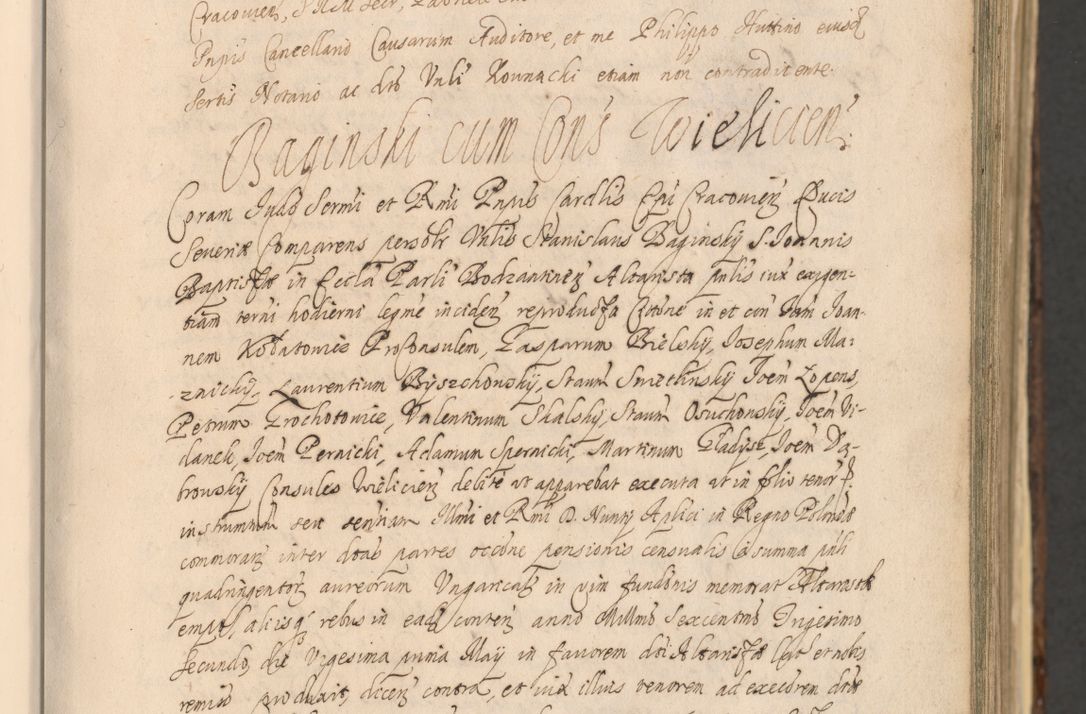 Cracovien,
Pnpis Cancellario Causarum Auditore, et me Philippo Huttino eiusq
sertis Notario ac dto Vnli Kownacki etiam non contradicente.
Baginski cum Cons Wieliccen
Coram Iudo Sermi et Rmi Pnpis Cardlis Epi Cracovien Ducis
Severiæ Comparens persolr Vnlis Stanislaus Baginsky S. Ioannis
Baptistæ in Eccla Parli Bodzantinen Altarista pnlis iux exigen-
tiam termi hodierni legme inciden reproducta Citone in et con Fam Ioan-
nem Kodatowic Proconsulem, Gasparum Bielsky, Iosephum Ma-
znicky, Laurentium Byszchonsky, Stanm Smethnsky Ioem Lopens,
Petrum Trochotowic, Valentinum Skalsky, Stanm Osuchonsky, Ioem Vi-
danek, Ioem Pernicki, Adamum Spernicki, Martinum Gladysz, Ioem Da-
browsky Consules Wielicien debite ut apparebat executa ut in folio tenor
instrumtum seu sentiam Illmi et Rmi D. Nuntij Aplici in Regno Poloniæ
commoran inter dtas partes occone pensionis censualis a summa pnli
quadringentor aureorum Vngarical in vim fundonis memorat Altaristæ
empt, aliisq rebus in eadem conten anno Millmo Sexcentmo Trigesimo
secundo, die Vigesima prima Maij in favorem dti Altaristæ lat et nobis
remiso produxit, dicen contra, et iux illius tenorem ad execorem dtæ